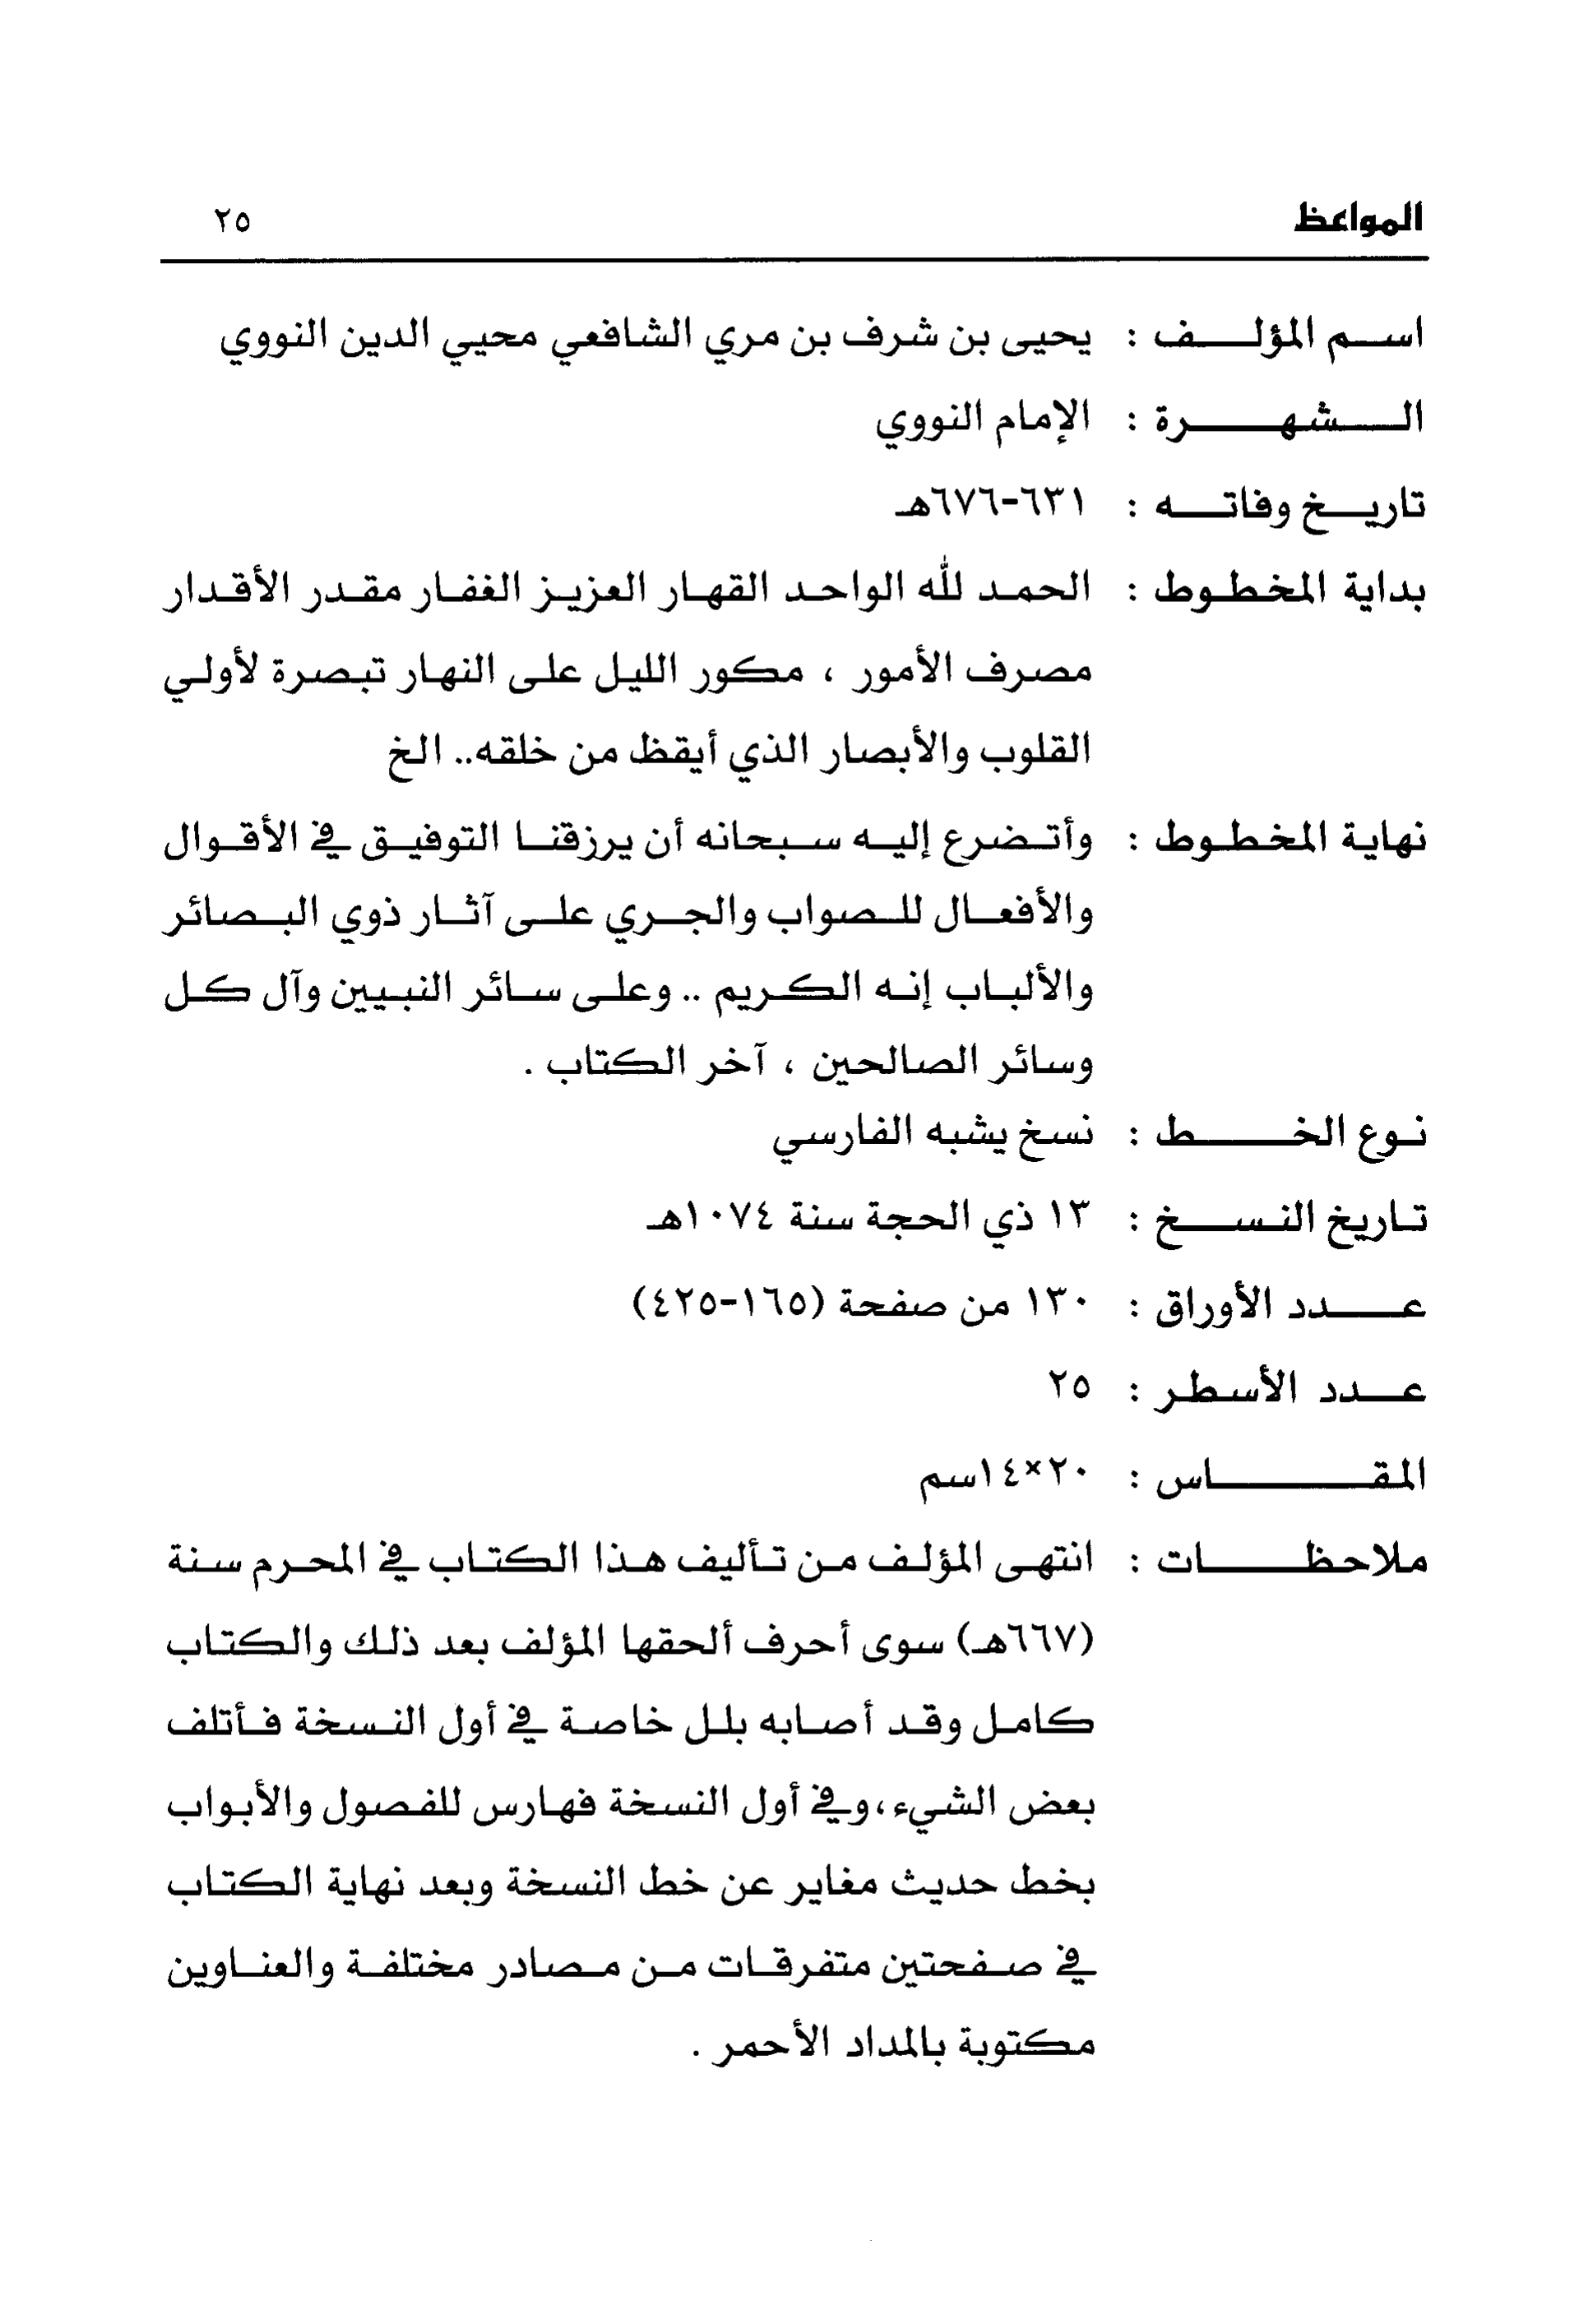 المواعظ ٢٥
اسم المؤلف : يحيى بن شرف بن مري الشافعي محيي الدين النووي
الشهرة : الإمام النووي
تاريخ وفاته : ٦٣١-٦٧٦هـ
بداية المخطوط : الحمد لله الواحد القهار العزيز الغفار مقدر الأقدار
مصرف الأمور ، مكور الليل على النهار تبصرة لأولي
القلوب والأبصار الذي أيقظ من خلقه.. الخ
نهاية المخطوط : وأتضرع إليه سبحانه أن يرزقنا التوفيق في الأقوال
والأفعال للصواب والجري على آثار ذوي البصائر
والألباب إنه الكريم .. وعلى سائر النبيين وآل كل
وسائر الصالحين ، آخر الكتاب .
نوع الخط : نسخ يشبه الفارسي
تاريخ النسخ : ١٣ ذي الحجة سنة ١٠٧٤هـ
عدد الأوراق : ١٣٠ من صفحة (١٦٥-٤٢٥)
عدد الأسطر : ٢٥
المقاس : ٢٠×١٤سم
ملاحظات : انتهى المؤلف من تأليف هذا الكتاب في المحرم سنة
(٦٦٧هـ) سوى أحرف ألحقها المؤلف بعد ذلك والكتاب
كامل وقد أصابه بلل خاصة في أول النسخة فأتلف
بعض الشيء، وفي أول النسخة فهارس للفصول والأبواب
بخط حديث مغاير عن خط النسخة وبعد نهاية الكتاب
في صفحتين متفرقات من مصادر مختلفة والعناوين
مكتوبة بالمداد الأحمر .